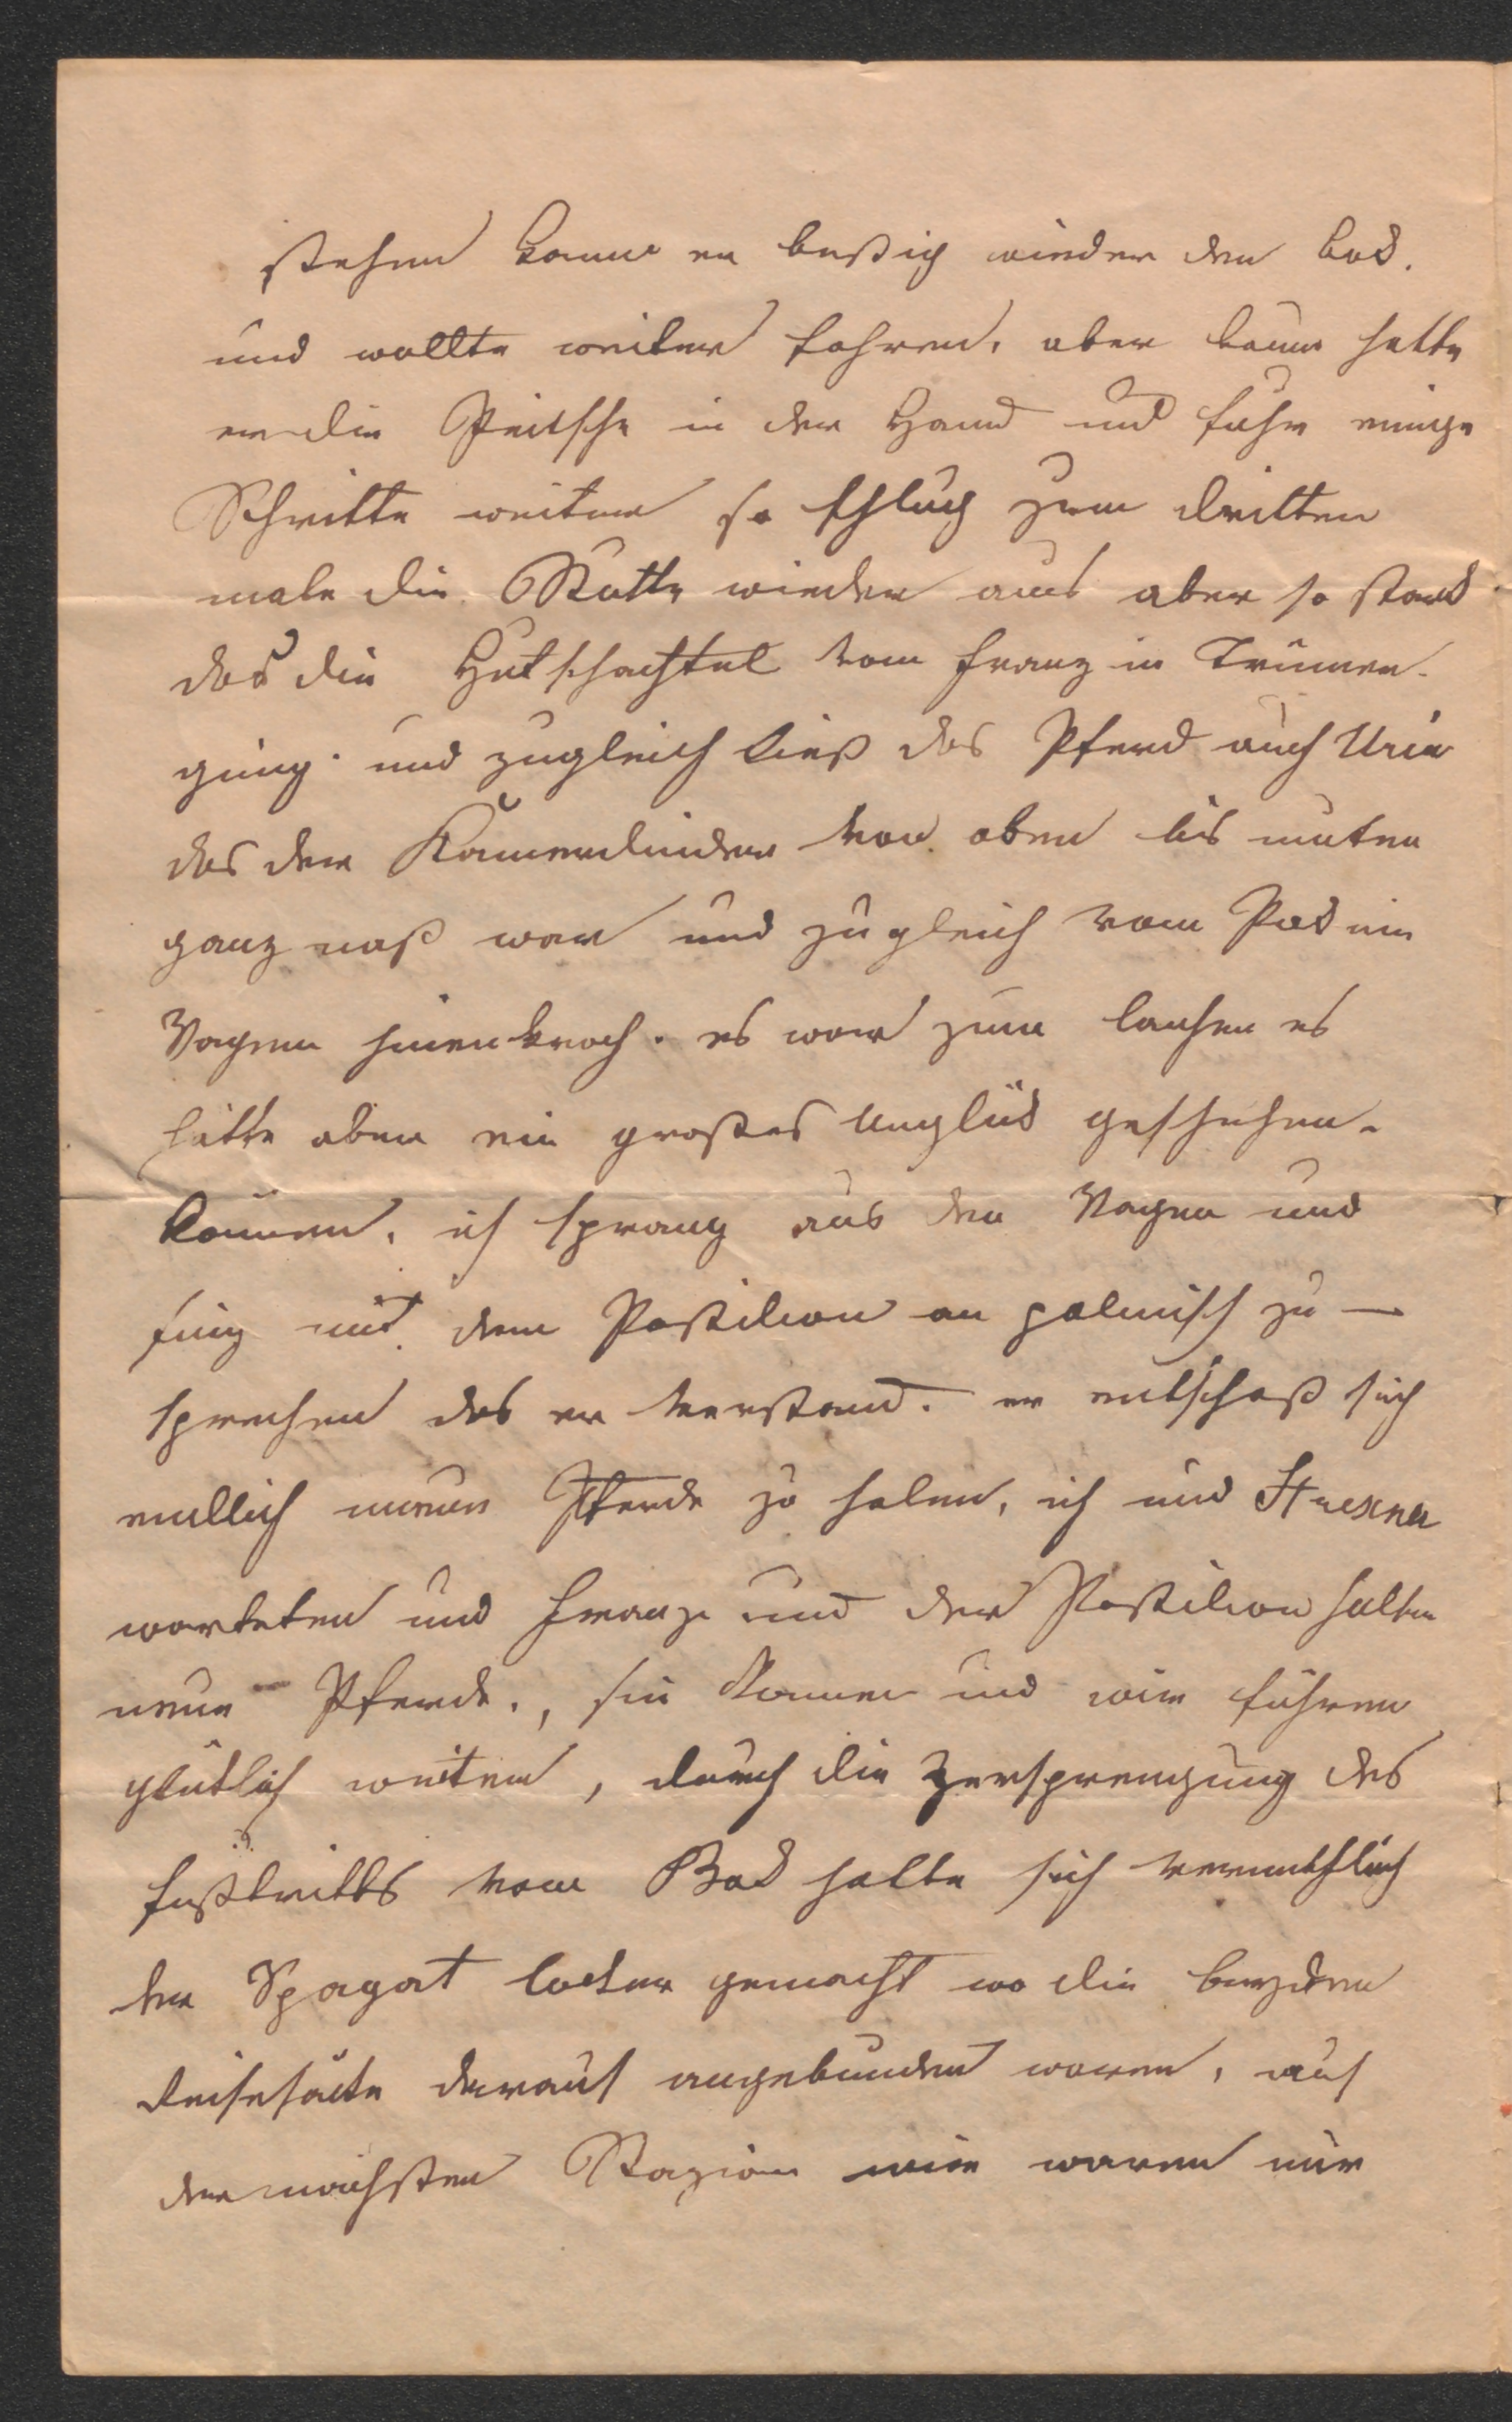 stehen kamm er bestig wieder den bok.
und wollte weiter fahren, aber kaum hatte
er die Peitsche in der Hand und fuhr einige
Schritte weiter so schlug zum dritten
male die Stutte wieder aus aber so stark
das die Hutschachtel vom Franz in Trümer
ging. und zugleich ließ das Pferd auch Urin
das der Kamerdiner von oben bis unten
ganz naß war und zugleich vom Pok im
Wagen hinenkroch. es war zum lachen es
hätte aber ein großes Unglük geschehen
können. ich sprang aus den Wagen und
fing mit dem Postilion an polnisch zu –
sprechen das er verstand. er entschoß sich
endlich neue Pferde zu holen, ich und
warteten und Franz und der Postilion holten
neue Pferde., sie kamen und wir fuhren
glüklich weiter, durch die Zersprengung des
Fußtritts vom Bok hatte sich vermuthlich
der Spagat locker gemacht wo die beyden
Reisesäke darauf angebunden waren, auf
der nächsten Stazion wir waren nur